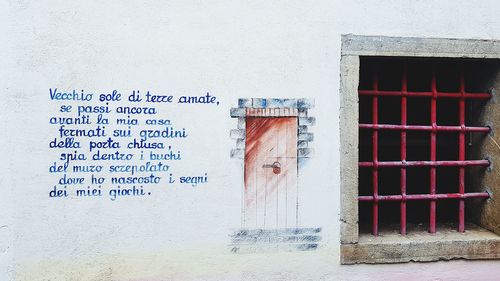 Vecchio sole di terre amate,
se passi ancora
avanti la mia casa
fermati sui gradini
della porta chiusa,
spia dentro i buchi
del muro screpolato
dove ho nascosto i segni
dei miei giochi.